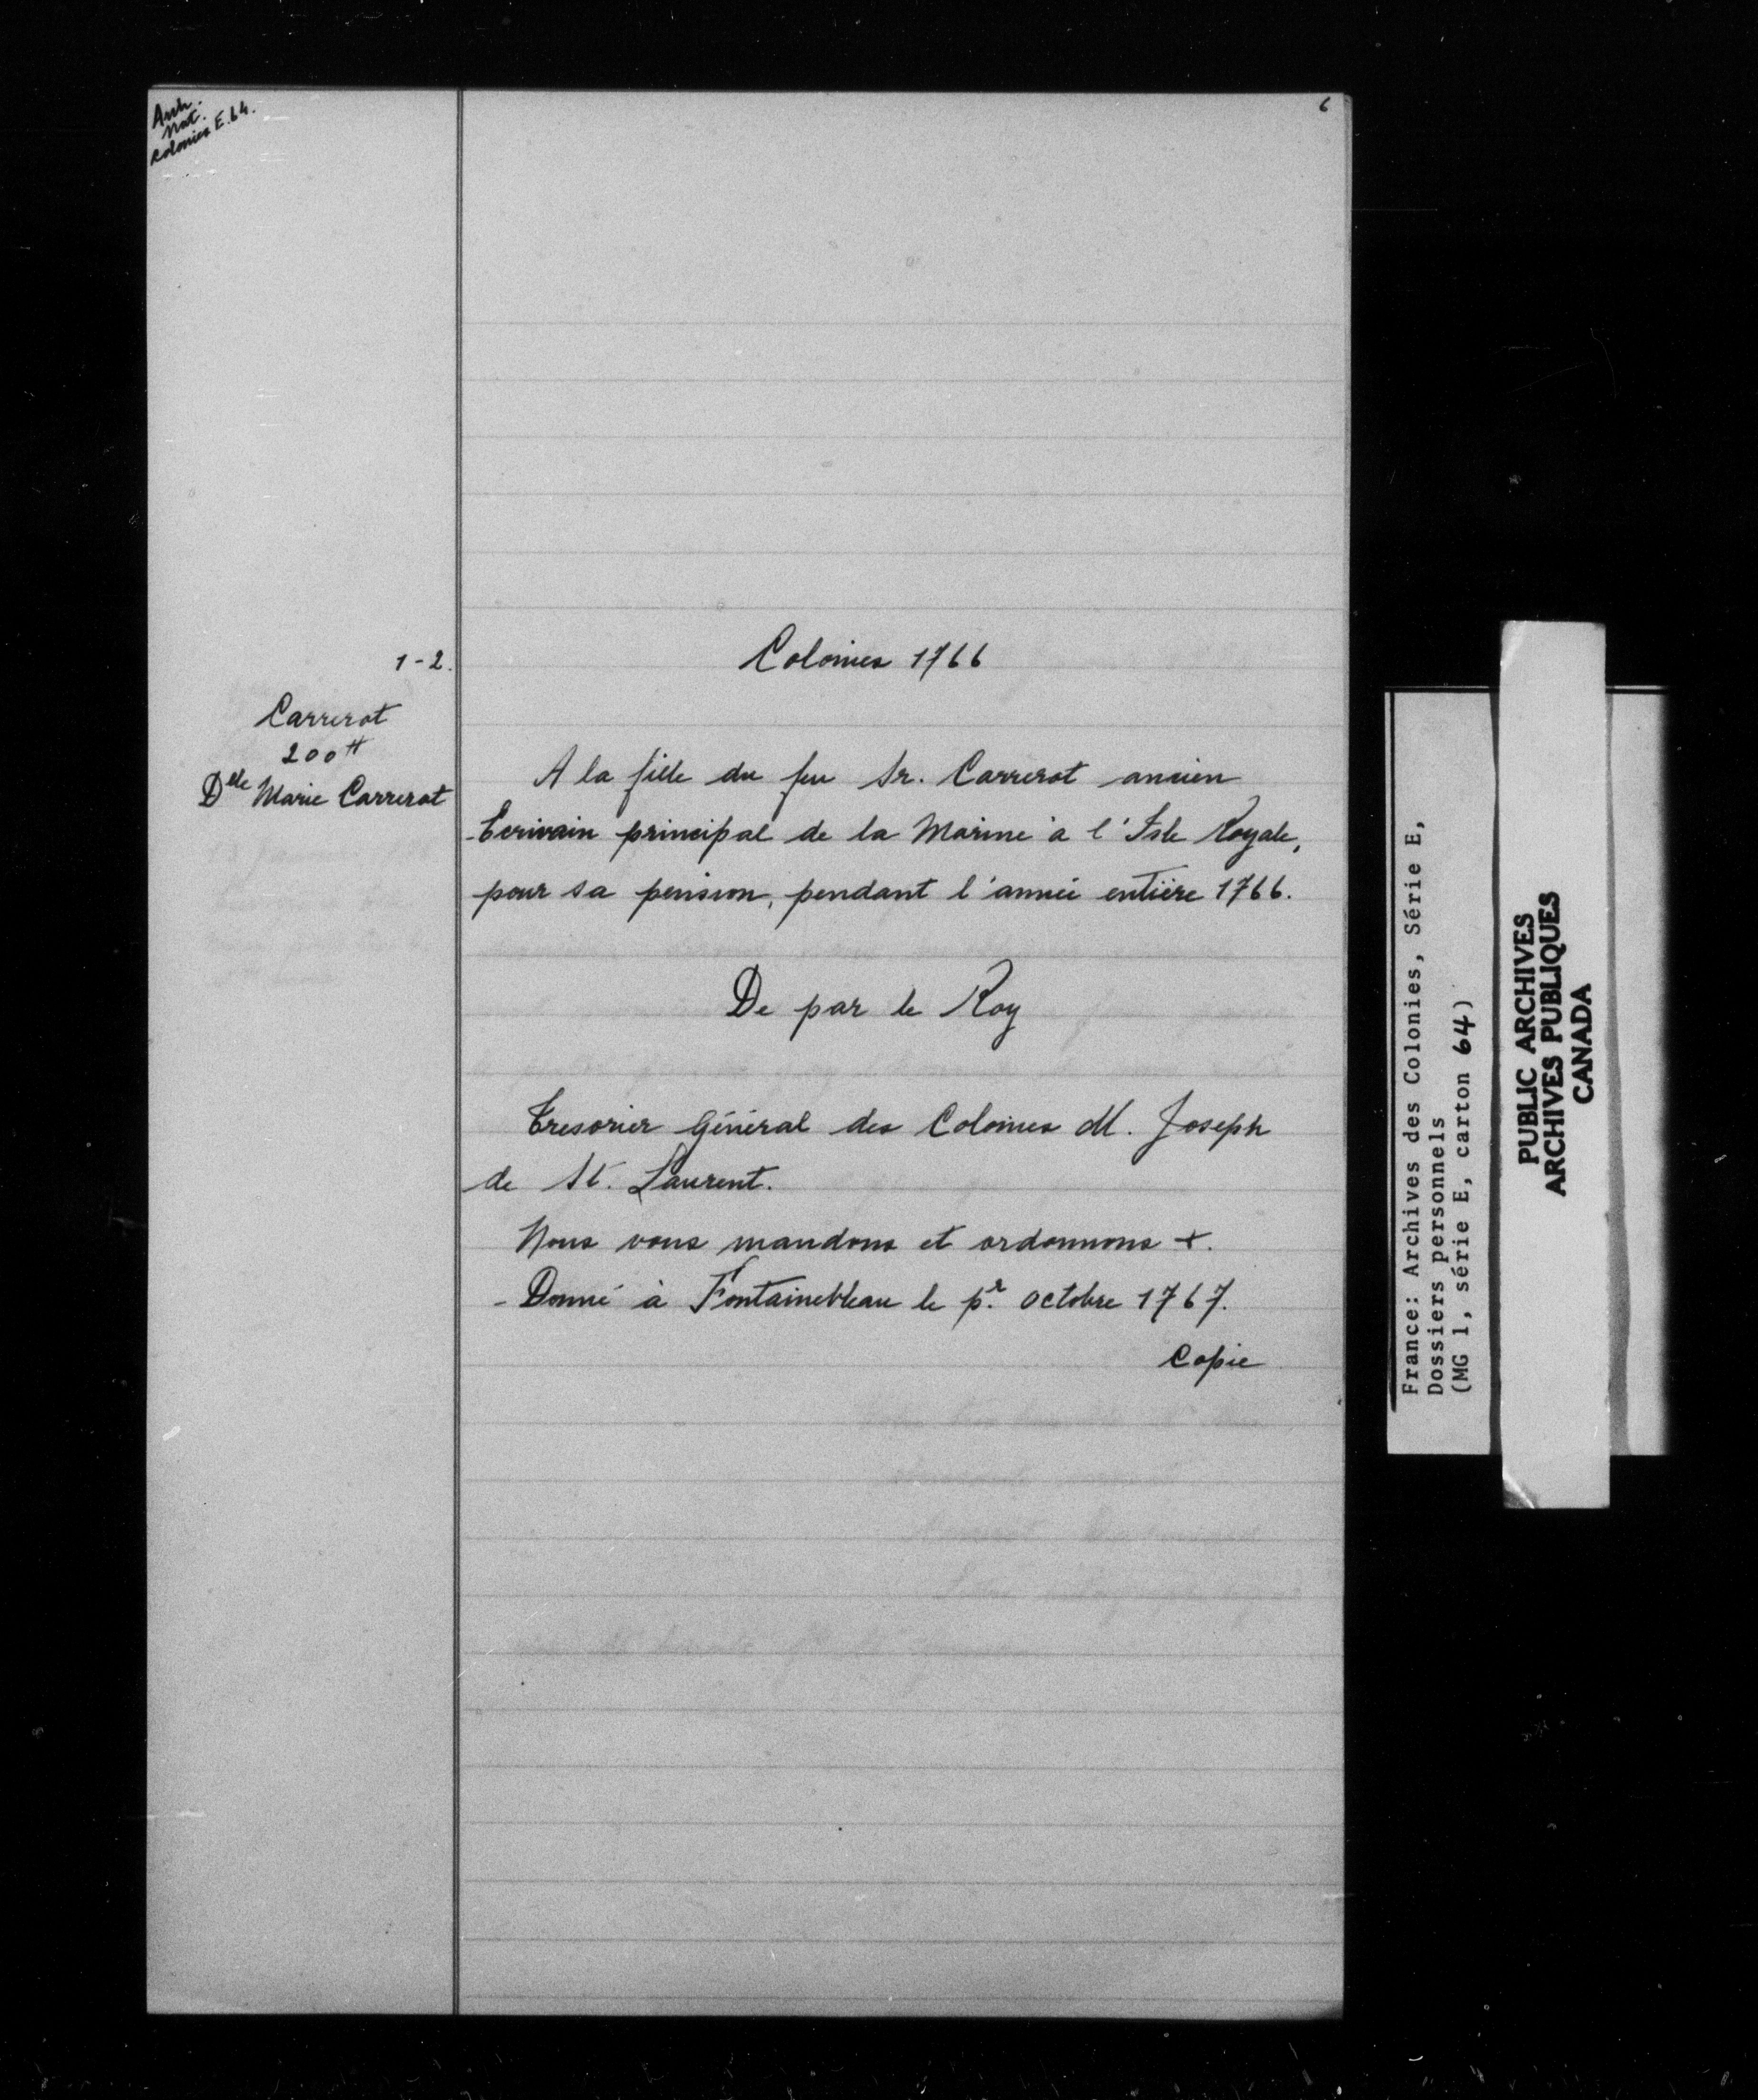 Arch.
Nat.
Colonies E.64.
6
1-2.
Carrerot
200#
Delle Marie Carrerot
Colonies 1766
A la fille du feu Sr. Carrerot ancien
Ecrivain principal de la Marine à l'Isle Royale,
pour sa pension, pendant l'année entière 1766.
De par le Roy
Tresorier Général des Colonies M. Joseph
de St. Laurent.
Nous vous mandons et ordonnons +.
- Donné à Fontainebleau le pr. octobre 1767.
Copie
France: Archives des Colonies, Série E,
Dossiers personnels
(MG 1, série E, carton 64)
PUBLIC ARCHIVES
ARCHIVES PUBLIQUES
CANADA